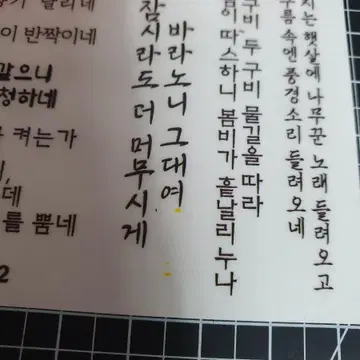 시는 햇살에 나무꾼 노래 들려오고
구름 속엔 풍경소리 들려오네
구비 두 구비 물길을 따라
따스하니 봄비가 흩날리누나
바라노니 그대여
잠시라도 더 머무시게
날리네
이 반짝이네
같으니
청하네
켜는가
데
를 뿜네
2